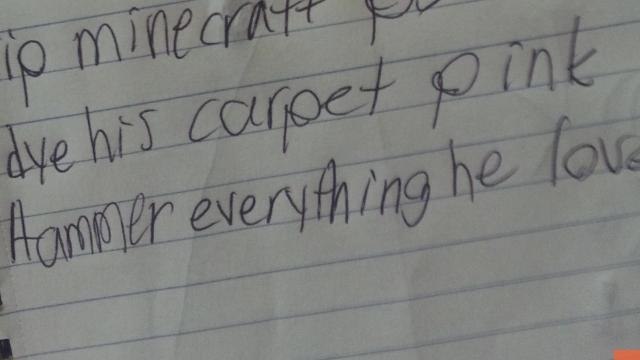 ip minecraft
dye his carpet pink
Hammer everything he